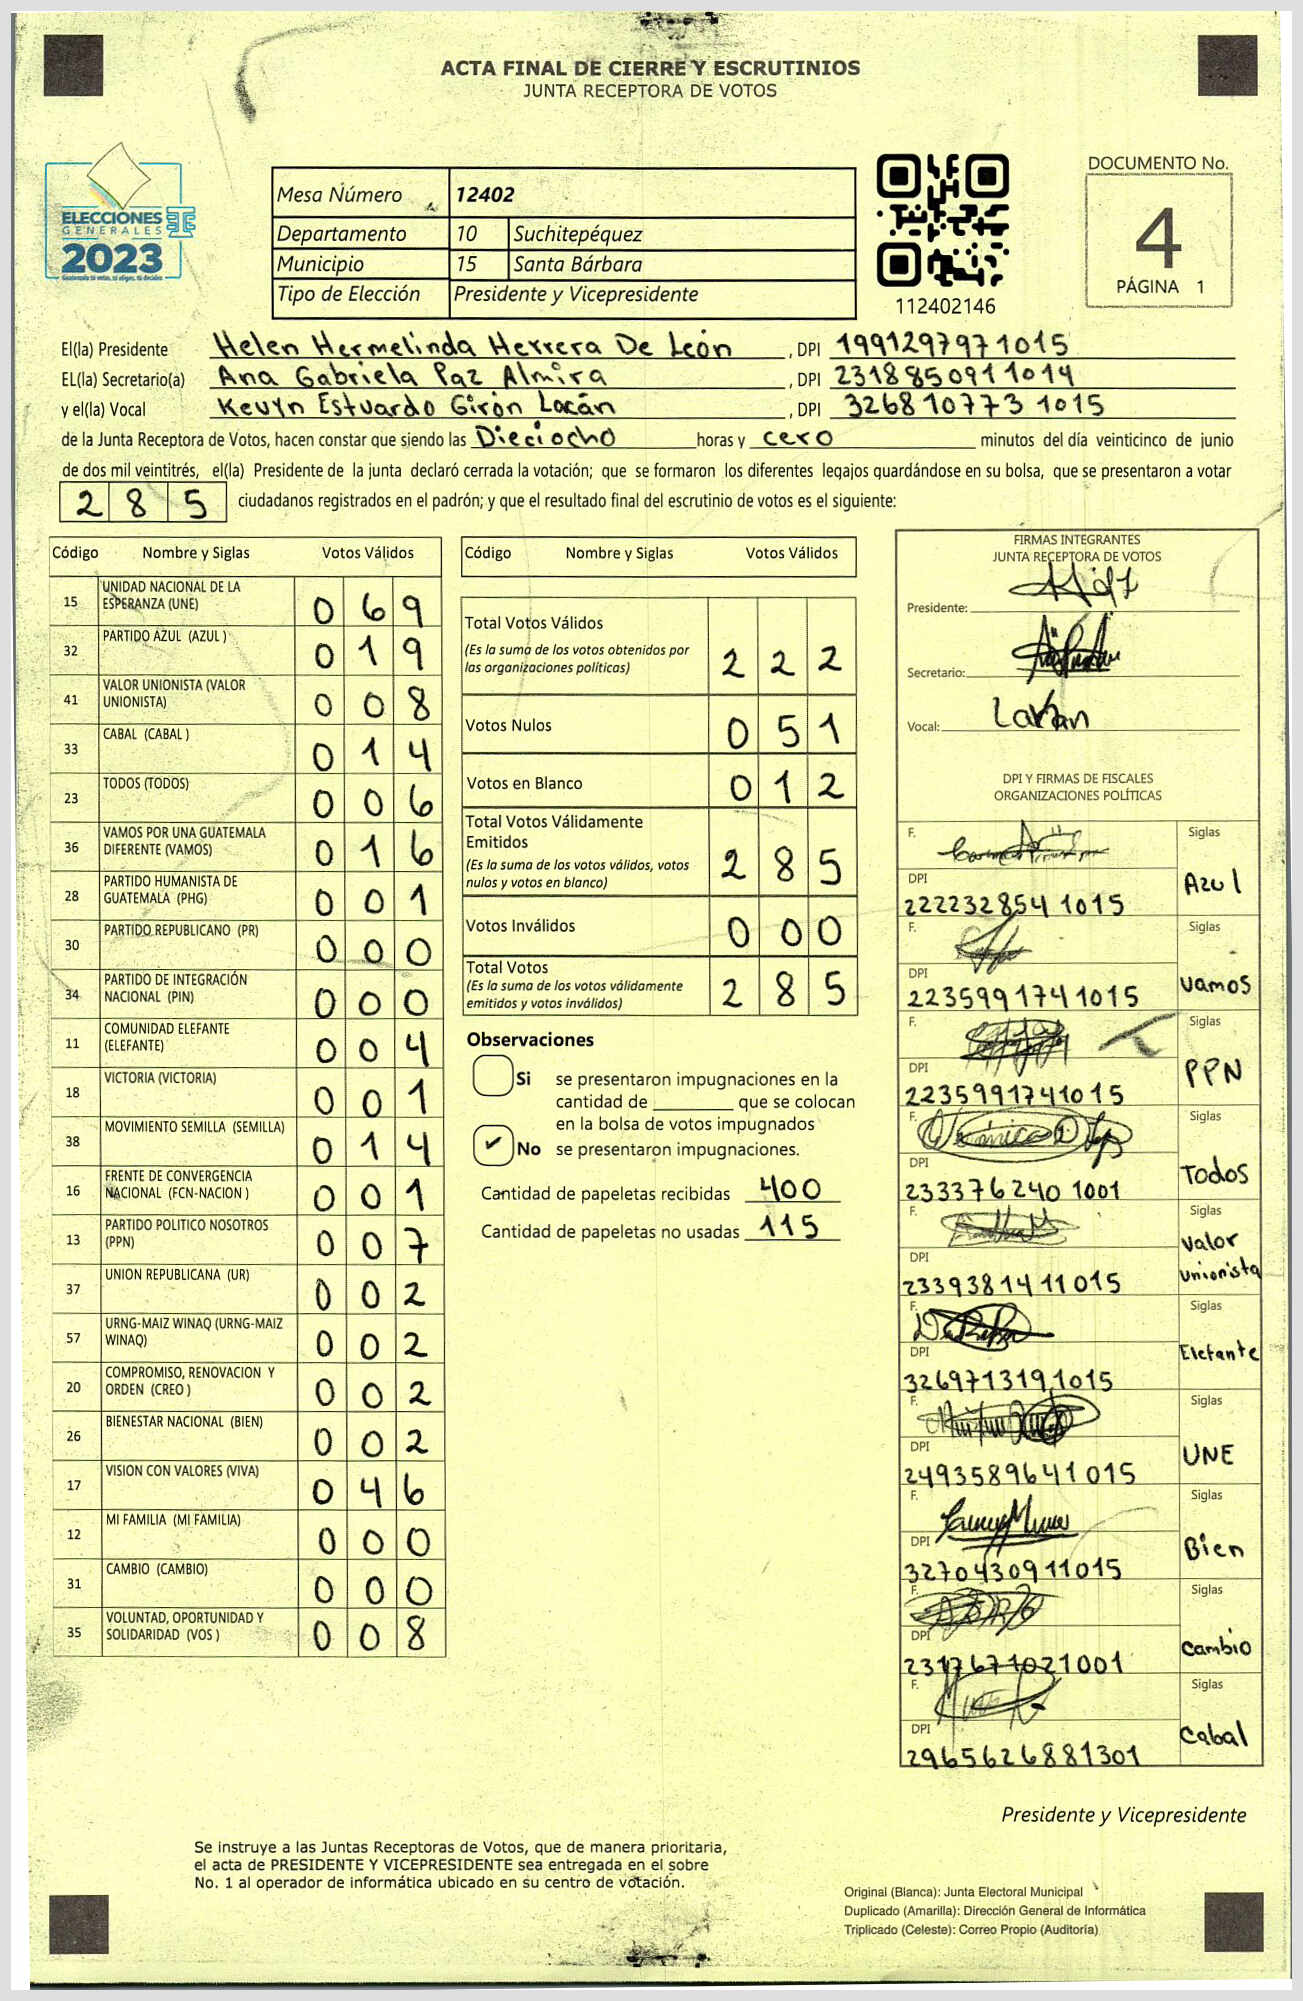 ACTA FINAL DE CIERRE Y ESCRUTINIOS
JUNTA RECEPTORA DE VOTOS
ELECCIONES
GENERALES
2023
Mesa Número 12402
Departamento 10 Suchitepéquez
Municipio 15 Santa Bárbara
Tipo de Elección Presidente y Vicepresidente
112402146
DOCUMENTO No.
4
PÁGINA 1
El(la) Presidente Helen Hermelinda Herrera De León , DPI 1991297971015
EL(la) Secretario(a) Ana Gabriela Paz Almira , DPI 2318850911014
y el(la) Vocal Kevyn Estuardo Girón Locán , DPI 3268107731015
de la Junta Receptora de Votos, hacen constar que siendo las Dieciocho horas y cero minutos del día veinticinco de junio
de dos mil veintitrés, el(la) Presidente de la junta declaró cerrada la votación; que se formaron los diferentes legajos quardándose en su bolsa, que se presentaron a votar
285 ciudadanos registrados en el padrón; y que el resultado final del escrutinio de votos es el siguiente:
Código Nombre y Siglas Votos Válidos
15 UNIDAD NACIONAL DE LA ESPERANZA (UNE) 069
32 PARTIDO AZUL (AZUL ) 019
41 VALOR UNIONISTA (VALOR UNIONISTA) 008
33 CABAL (CABAL ) 014
23 TODOS (TODOS) 006
36 VAMOS POR UNA GUATEMALA DIFERENTE (VAMOS) 016
28 PARTIDO HUMANISTA DE GUATEMALA (PHG) 001
30 PARTIDO REPUBLICANO (PR) 000
34 PARTIDO DE INTEGRACIÓN NACIONAL (PIN) 000
11 COMUNIDAD ELEFANTE (ELEFANTE) 004
18 VICTORIA (VICTORIA) 001
38 MOVIMIENTO SEMILLA (SEMILLA) 014
16 FRENTE DE CONVERGENCIA NACIONAL (FCN-NACION ) 001
13 PARTIDO POLITICO NOSOTROS (PPN) 007
37 UNION REPUBLICANA (UR) 002
57 URNG-MAIZ WINAQ (URNG-MAIZ WINAQ) 002
20 COMPROMISO, RENOVACION Y ORDEN (CREO ) 002
26 BIENESTAR NACIONAL (BIEN) 002
17 VISION CON VALORES (VIVA) 046
12 MI FAMILIA (MI FAMILIA) 000
31 CAMBIO (CAMBIO) 000
35 VOLUNTAD, OPORTUNIDAD Y SOLIDARIDAD (VOS ) 008
Código Nombre y Siglas Votos Válidos
Total Votos Válidos 222
(Es la suma de los votos obtenidos por
las organizaciones políticas)
Votos Nulos 051
Votos en Blanco 012
Total Votos Válidamente
Emitidos 285
(Es la suma de los votos válidos, votos
nulos y votos en blanco)
Votos Inválidos 000
Total Votos 285
(Es la suma de los votos válidamente
emitidos y votos inválidos)
Observaciones
Si se presentaron impugnaciones en la
cantidad de ________ que se colocan
en la bolsa de votos impugnados
✔ No se presentaron impugnaciones.
Cantidad de papeletas recibidas 400
Cantidad de papeletas no usadas 115
FIRMAS INTEGRANTES
JUNTA RECEPTORA DE VOTOS
Presidente:
Secretario:
Vocal:
DPI Y FIRMAS DE FISCALES
ORGANIZACIONES POLÍTICAS
F. Siglas
DPI Azul
2222328541015
F. Siglas
DPI Vamos
2235991741015
F. Siglas
DPI PPN
2235991741015
F. Siglas
DPI Todos
2333762401001
F. Siglas
DPI Valor Unionista
2339381411015
F. Siglas
DPI Elefante
3269713191015
F. Siglas
DPI UNE
2493589641015
F. Siglas
DPI Bien
3270430911015
F. Siglas
DPI Cambio
2317671021001
F. Siglas
DPI Cabal
2965626881301
Presidente y Vicepresidente
Se instruye a las Juntas Receptoras de Votos, que de manera prioritaria,
el acta de PRESIDENTE Y VICEPRESIDENTE sea entregada en el sobre
No. 1 al operador de informática ubicado en su centro de votación.
Original (Blanca): Junta Electoral Municipal
Duplicado (Amarilla): Dirección General de Informática
Triplicado (Celeste): Correo Propio (Auditoría)